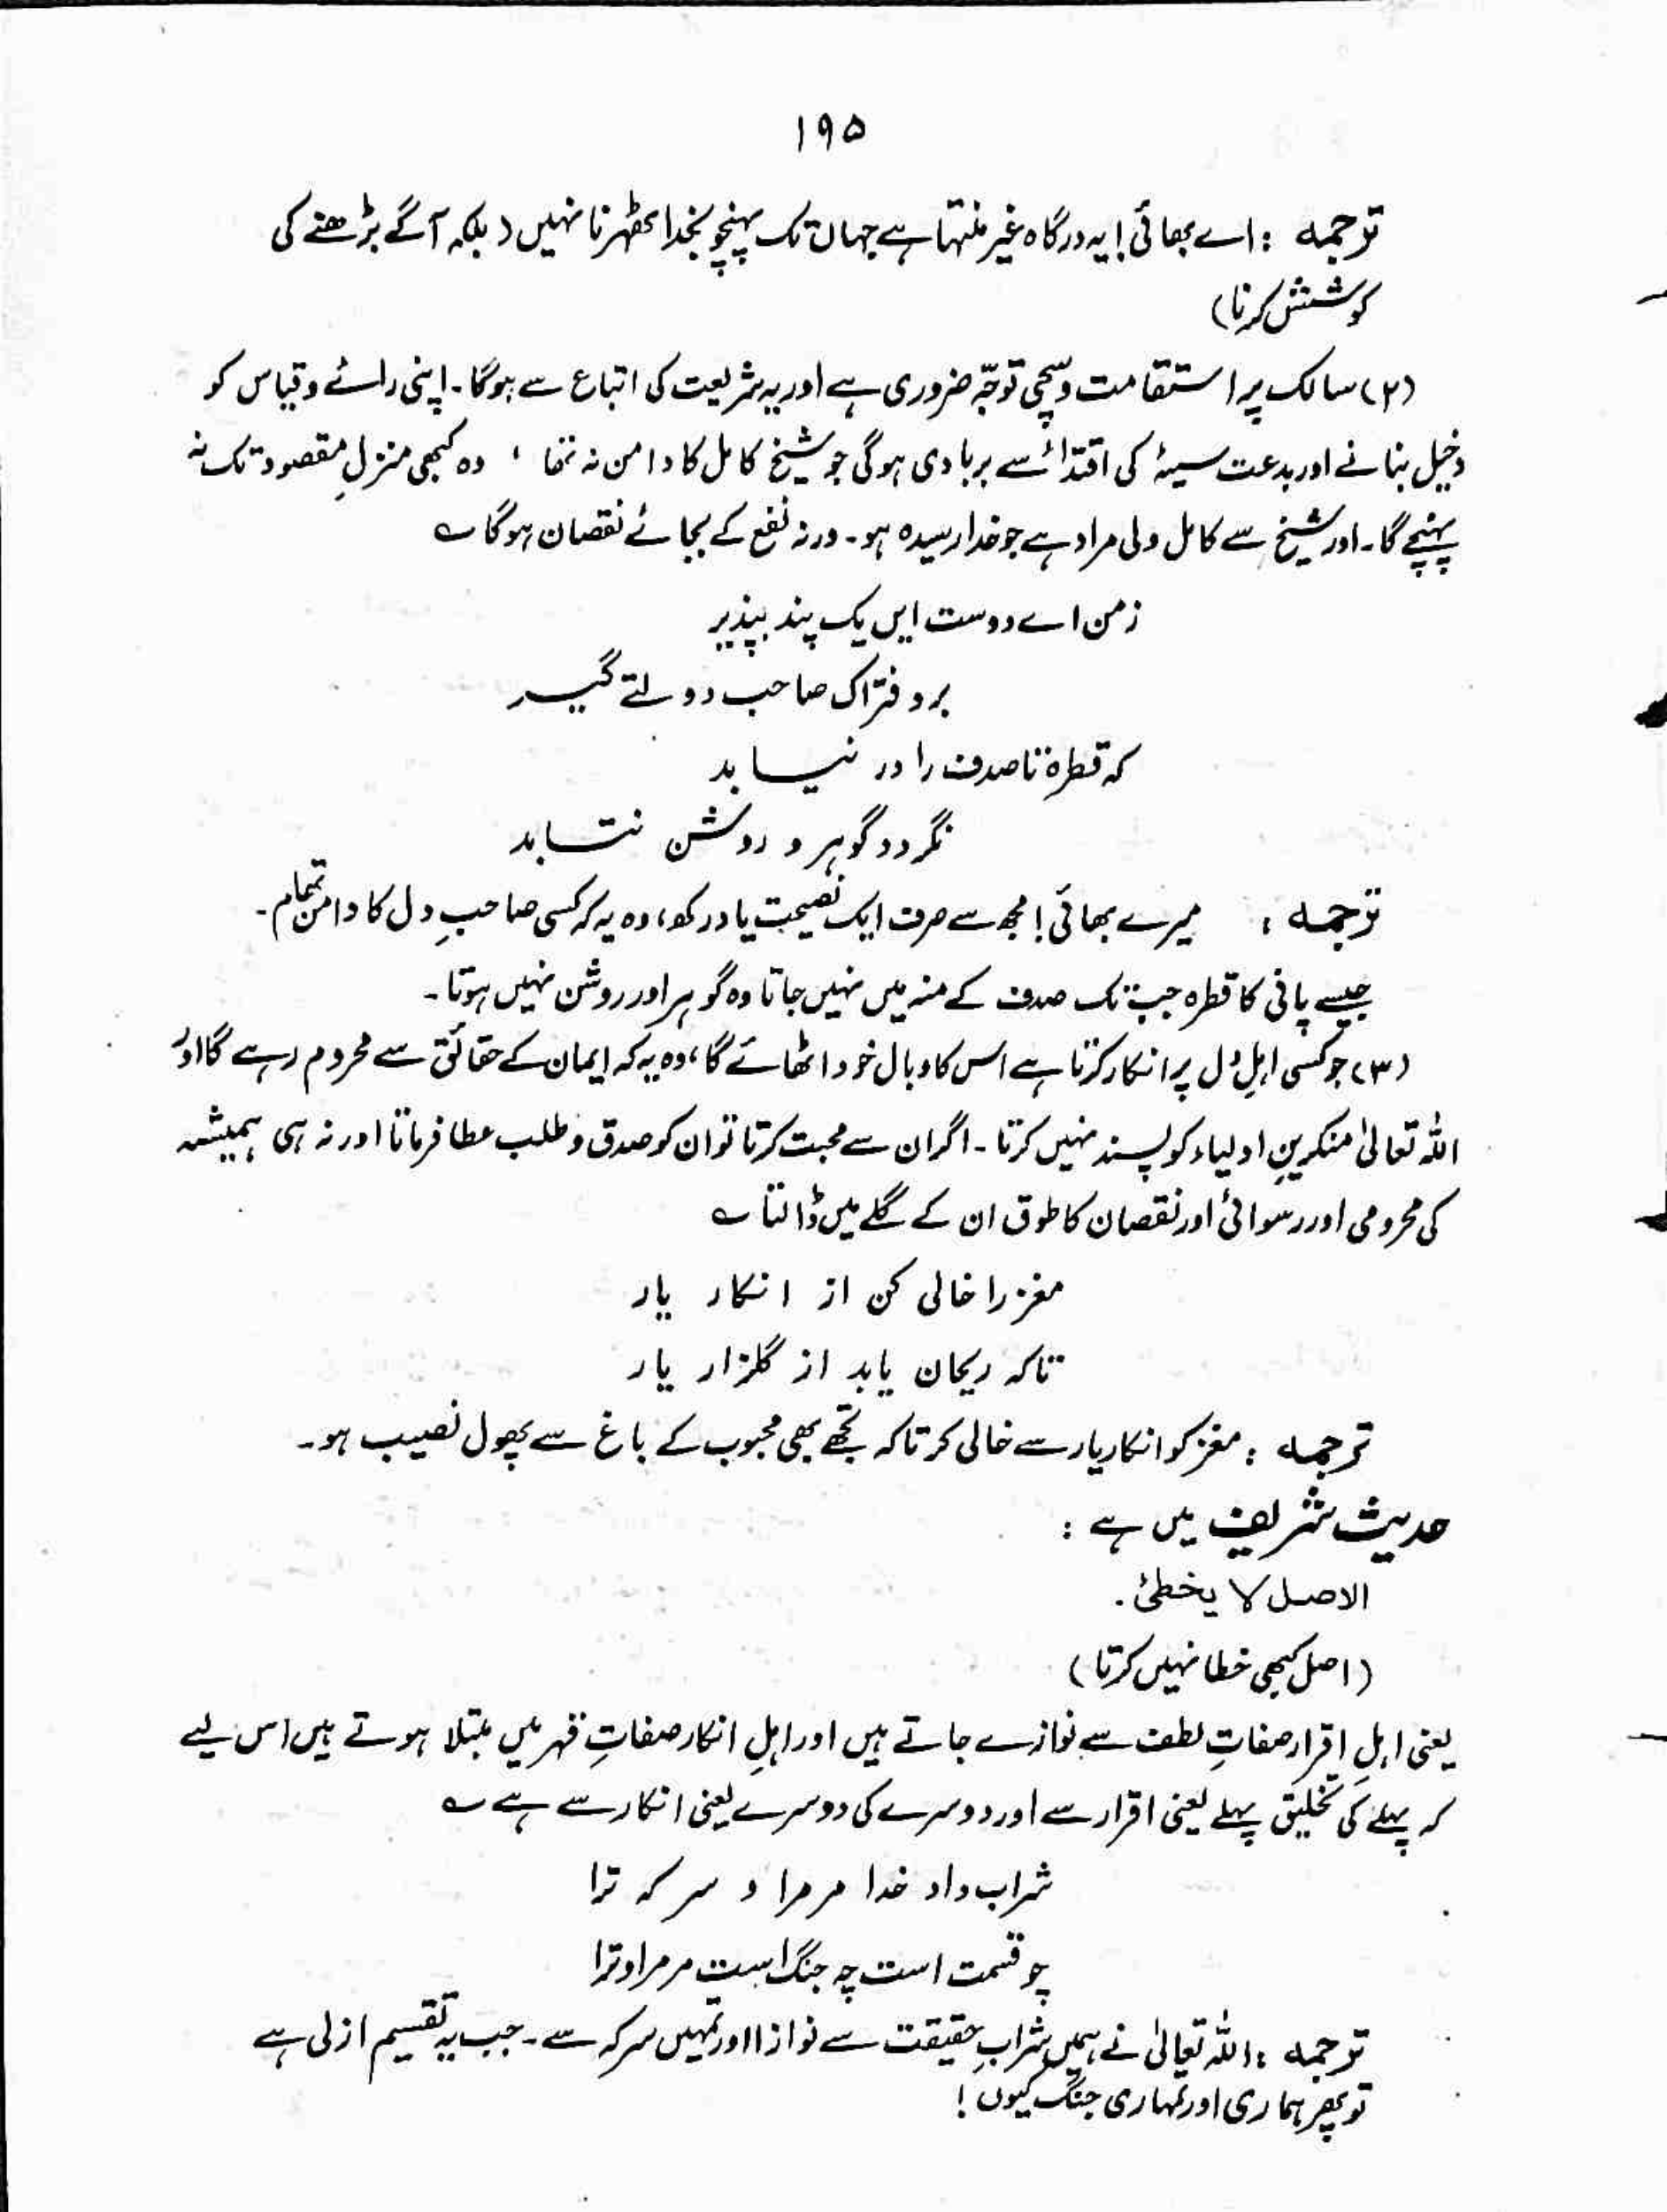 ۱۹۵
ترجمہ : اے بھائی! یہ درگاہ غیر منتہا ہے جہاں تک پہنچو بخدا ٹھہرنا نہیں (بلکہ آگے بڑھنے کی
کوشش کرنا)
(۲) سالک پر استقامت و سچی توجّہ ضروری ہے اور یہ شریعت کی اتباع سے ہوگا۔ اپنی رائے و قیاس کو
دخیل بنانے اور بدعت سیئہ کی اقتداء سے بربادی ہوگی جو شیخ کامل کا دامن نہ تھا ، وہ کبھی منزلِ مقصود تک نہ
پہنچے گا۔ اور شیخ سے کامل ولی مراد ہے جو خدا رسیدہ ہو۔ ورنہ نفع کے بجائے نقصان ہوگا ؎
زمن اے دوست ایں یک پند بپذیر
برو فتراک صاحب دولتے گیر
کہ قطرہ تا صدف را در نیابد
نگردد گوہر و روشن نتابد
ترجمہ : میرے بھائی! مجھ سے صرف ایک نصیحت یاد رکھو، وہ یہ کہ کسی صاحبِ دل کا دامن تھام۔
جیسے پانی کا قطرہ جب تک صدف کے منہ میں نہیں جاتا وہ گوہر اور روشن نہیں ہوتا۔
(۳) جو کسی اہلِ دل پر انکار کرتا ہے اس کا وبال خود اٹھائے گا، وہ یہ کہ ایمان کے حقائق سے محروم رہے گا اور
اللہ تعالیٰ منکرینِ اولیاء کو پسند نہیں کرتا۔ اگر ان سے محبت کرتا تو ان کو صدق و طلب عطا فرماتا اور نہ ہی ہمیشہ
کی محرومی اور رسوائی اور نقصان کا طوق ان کے گلے میں ڈالتا ؎
مغز را خالی کن از انکار یار
تاکہ ریحان یابد از گلزار یار
ترجمہ : مغز کو انکار یار سے خالی کر تاکہ تجھے بھی محبوب کے باغ سے پھول نصیب ہو۔
حدیث شریف میں ہے :
الاصل لا یخطئ۔
(اصل کبھی خطا نہیں کرتا)
یعنی اہلِ اقرار صفاتِ لطف سے نوازے جاتے ہیں اور اہلِ انکار صفاتِ قہر میں مبتلا ہوتے ہیں اس لیے
کہ پہلے کی تخلیق پہلے یعنی اقرار سے اور دوسرے کی دوسرے یعنی انکار سے ہے ؎
شراب داد خدا مر مرا و سرکہ ترا
چو قسمت است چہ جنگ است مر مرا و ترا
ترجمہ : اللہ تعالیٰ نے ہمیں شرابِ حقیقت سے نوازا اور تمہیں سرکہ سے۔ جب یہ تقسیم ازلی ہے
تو پھر ہماری اور تمہاری جنگ کیوں!